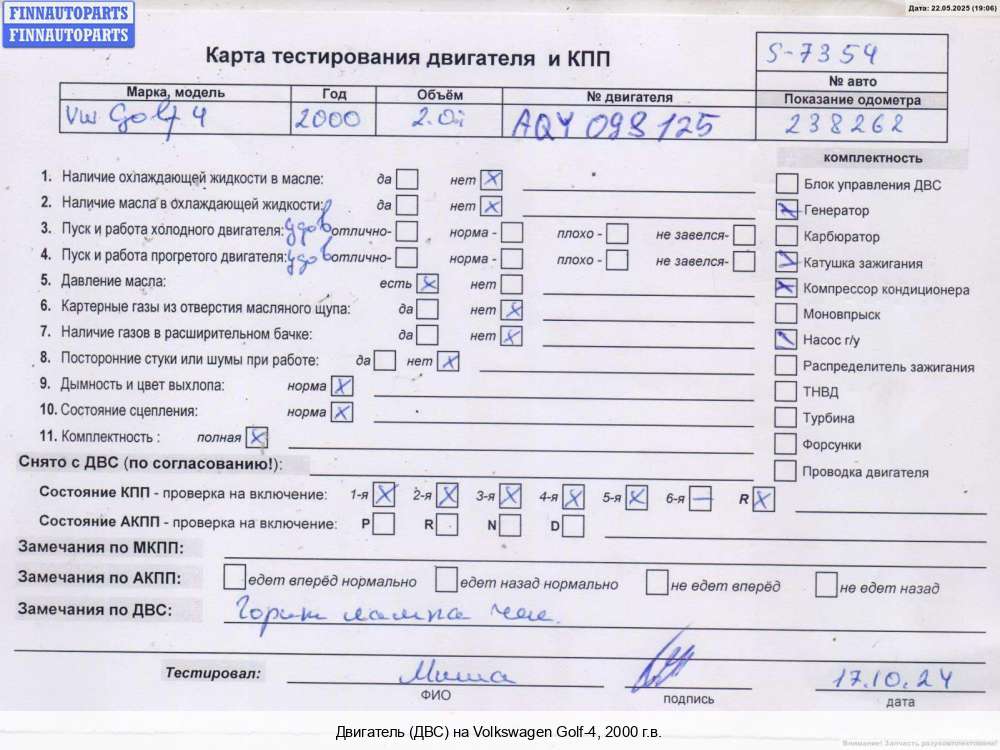 FINNAUTOPARTS
FINNAUTOPARTS
Дата: 22.05.2025 (19:06)
Карта тестирования двигателя и КПП
S-7354
№ авто
Марка, модель Год Объём № двигателя Показание одометра
VW Golf 4 2000 2.0i AQY 098 125 238262
комплектность
1. Наличие охлаждающей жидкости в масле: да нет
Блок управления ДВС
2. Наличие масла в охлаждающей жидкости: да нет
Генератор
3. Пуск и работа холодного двигателя: удов отлично- норма - плохо - не завелся-
Карбюратор
4. Пуск и работа прогретого двигателя: удов отлично- норма - плохо - не завелся-
Катушка зажигания
5. Давление масла: есть нет
Компрессор кондиционера
6. Картерные газы из отверстия масляного щупа: да нет
Моновпрыск
7. Наличие газов в расширительном бачке: да нет
Насос г/у
8. Посторонние стуки или шумы при работе: да нет
Распределитель зажигания
9. Дымность и цвет выхлопа: норма
ТНВД
10. Состояние сцепления: норма
Турбина
11. Комплектность : полная
Форсунки
Снято с ДВС (по согласованию!):
Проводка двигателя
Состояние КПП - проверка на включение: 1-я 2-я 3-я 4-я 5-я 6-я R
Состояние АКПП - проверка на включение: P R N D
Замечания по МКПП:
Замечания по АКПП: едет вперёд нормально едет назад нормально не едет вперёд не едет назад
Замечания по ДВС: Горит лампа чек.
Тестировал: Миша 17.10.24
ФИО подпись дата
Двигатель (ДВС) на Volkswagen Golf-4, 2000 г.в.
Внимание! Запчасть разукомплектована!